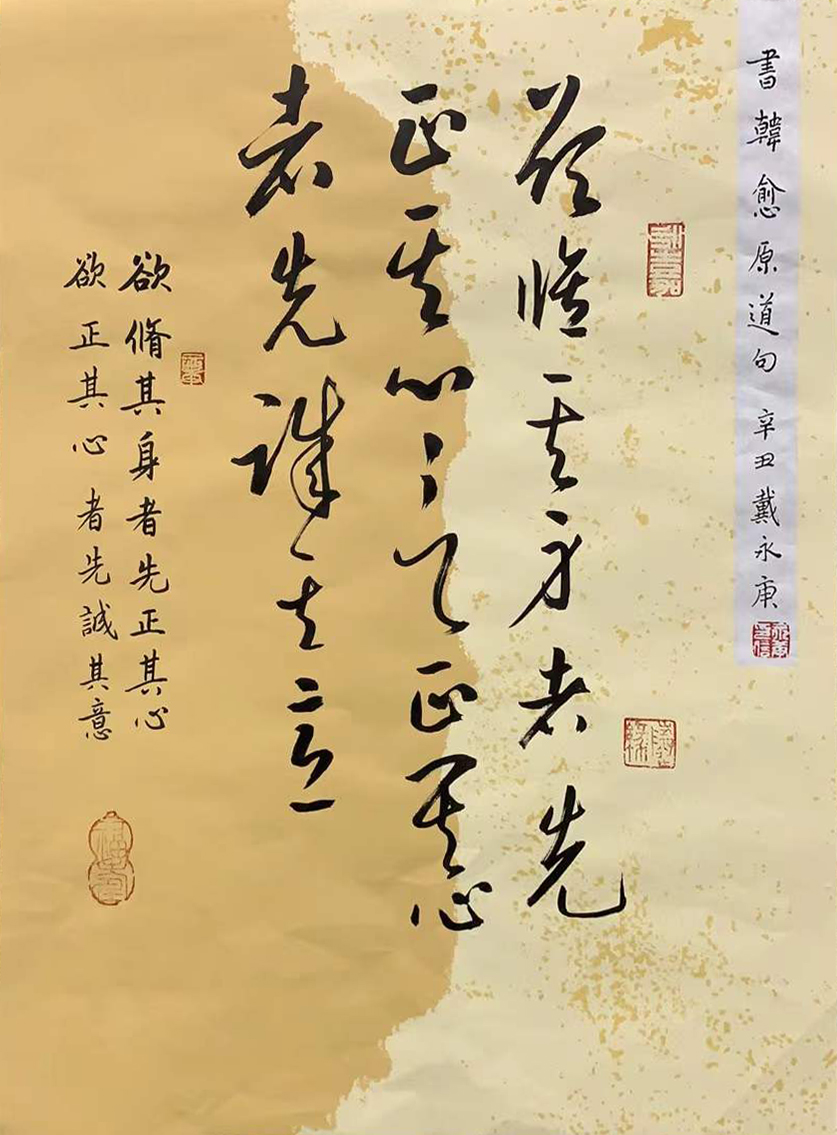 書韓愈原道句 辛丑戴永庚
欲脩其身者先
正其心欲正其心
者先誠其意
欲脩其身者先正其心
欲正其心者先誠其意